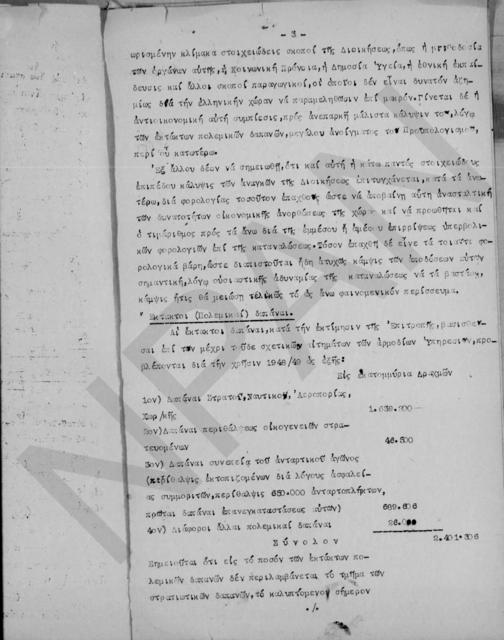 - 3 -
ωρισμένην κλίμακα στοιχειώδεις σκοποί τῆς Διοικήσεως, ὅπως ἡ μισθοδοσία
τῶν ὀργάνων αὐτῆς, ἡ Κοινωνική Πρόνοια, ἡ Δημοσία Ὑγεία, ἡ ἐθνική ἐκπαί
δευσις καί ἄλλοι σκοποί παραγωγικοί, οἱ ὁποῖοι δέν εἶναι δυνατόν ἀζη-
μίως διά τήν ἑλληνικήν χώραν νά παραμεληθῶσιν ἐπί μακρόν. Γίνεται δέ ἡ
ἀντιοικονομική αὐτή συμπίεσις, πρός ἀνεπαρκῆ μάλιστα κάλυψιν το", λόγῳ
τῶν ἐκτάκτων πολεμικῶν δαπανῶν, μεγάλου ἀνοίγματος τοῦ Προϋπολογισμοῦ,
περί οὗ κατωτέρω.
Ἐξ ἄλλου δέον νά σημειωθῇ, ὅτι καί αὐτή ἡ κάτω παντός στοιχειώδους
ἐπιπέδου κάλυψις τῶν ἀναγκῶν τῆς Διοικήσεως ἐπιτυγχάνεται, κατά τά ἀνω
τέρω, διά φορολογίας τοσοῦτον ἐπαχθοῦς ὥστε νά ἀποβαίνῃ αὕτη ἀνασταλτική
τῶν δυνατοτήτων οἰκονομικῆς ἀνορθώσεως τῆς χώρας καί νά προωθῆται καί
ὁ τιμάριθμος πρός τά ἄνω διά τῆς ἐμμέσου ἤ ἀμέσου ἐπιρρίψεως ὑπερβολι-
κῶν φορολογιῶν ἐπί τῆς καταναλώσεως. Τόσον ἐπαχθῆ δέ εἶνε τά τοιαῦτα φο-
ρολογικά βάρη, ὥστε διαπιστοῦται ἤδη ἀτυχῶς κάμψις τῶν ἀποδόσεων αὐτῶν
σημαντική, λόγῳ οὐσιαστικῆς ἀδυναμίας τῆς καταναλώσεως νά τά βαστάσῃ,
κάμψις ἥτις θά μειώσῃ τελικῶς τό ὡς ἄνω φαινομενικόν περίσσευμα.
Ἔκτακτοι (Πολεμικαί) δαπάναι.
Αἱ ἔκτακτοι δαπάναι, κατά τήν ἐκτίμησιν τῆς Ἐπιτροπῆς, βασισθεῖ-
σαι ἐπί τῶν μέχρι τοῦδε σχετικῶν αἰτημάτων τῶν ἁρμοδίων Ὑπηρεσιῶν, προ-
βλέπονται διά τήν χρῆσιν 1948/49 ὡς ἑξῆς:
Εἰς Ἑκατομμύρια Δραχμῶν
1ον) Δαπάναι Στρατοῦ, Ναυτικοῦ, Ἀεροπορίας,
Χωρ/κῆς
1.659.200—
2ον) Δαπάναι περιθάλψεως οἰκογενειῶν στρα-
τευομένων 46.500
3ον) Δαπάναι συνεπείᾳ τοῦ ἀνταρτικοῦ ἀγῶνος
(περίθαλψις ἐκτοπιζομένων διά λόγους ἀσφαλεί-
ας συμμοριτῶν, περίθαλψις 650.000 ἀνταρτοπλήκτων,
πρῶται δαπάναι ἐπανεγκαταστάσεως αὐτῶν) 669.606
4ον) Διάφοροι ἄλλαι πολεμικαί δαπάναι 26.000
Σύνολον 2.401.306
Σημειοῦται ὅτι εἰς τό ποσόν τῶν ἐκτάκτων πο-
λεμικῶν δαπανῶν δέν περιλαμβάνεται τό τμῆμα τῶν
στρατιωτικῶν δαπανῶν, τό καλυπτόμενον σήμερον
./.